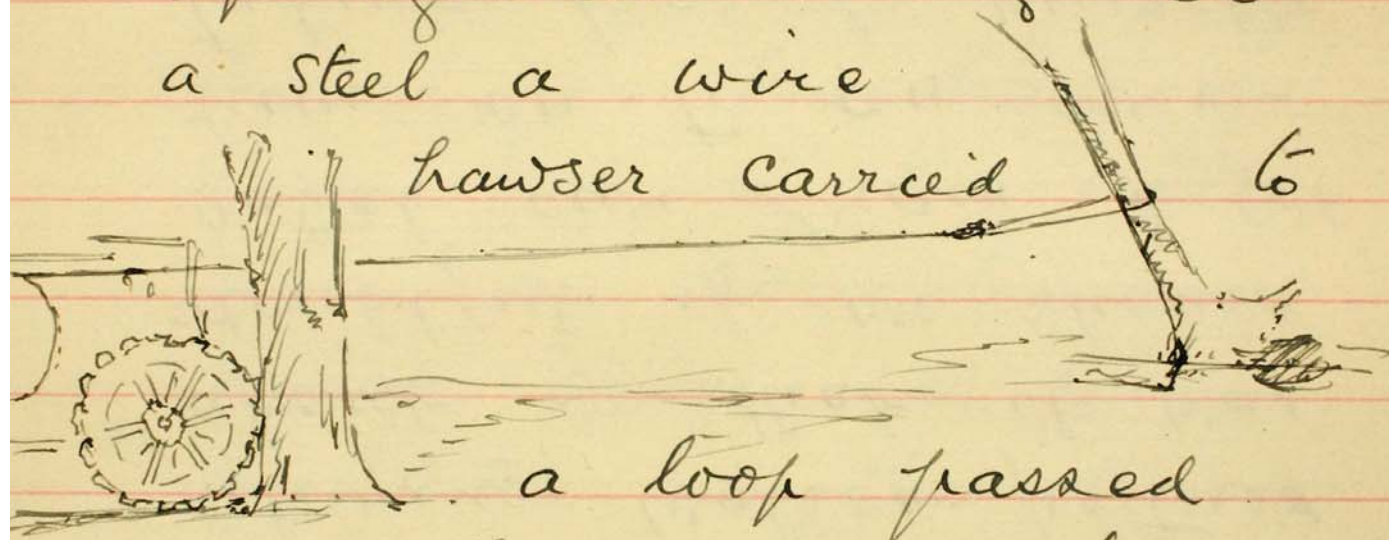 a steel a wire
hawser carried to
a loop passed